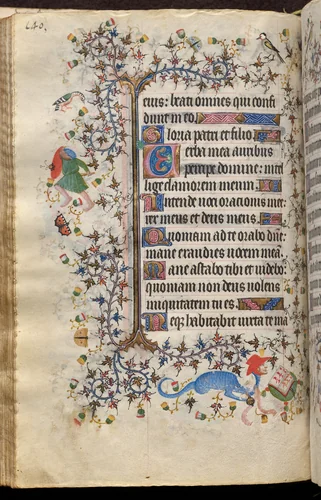 eius: beati omnes qui confi
dunt in eo.
Gloria patri et filio
Verba mea auribus
percipe domine: intel
lige clamorem meum.
Intende voci orationis me
e: rex meus et deus meus.
Quoniam ad te orabo dñe:
mane exaudies vocem meã.
Mane astabo tibi et videbo:
quoniam non deus volens
iniquitatem tu es.
Neq; habitabit iuxta te ma